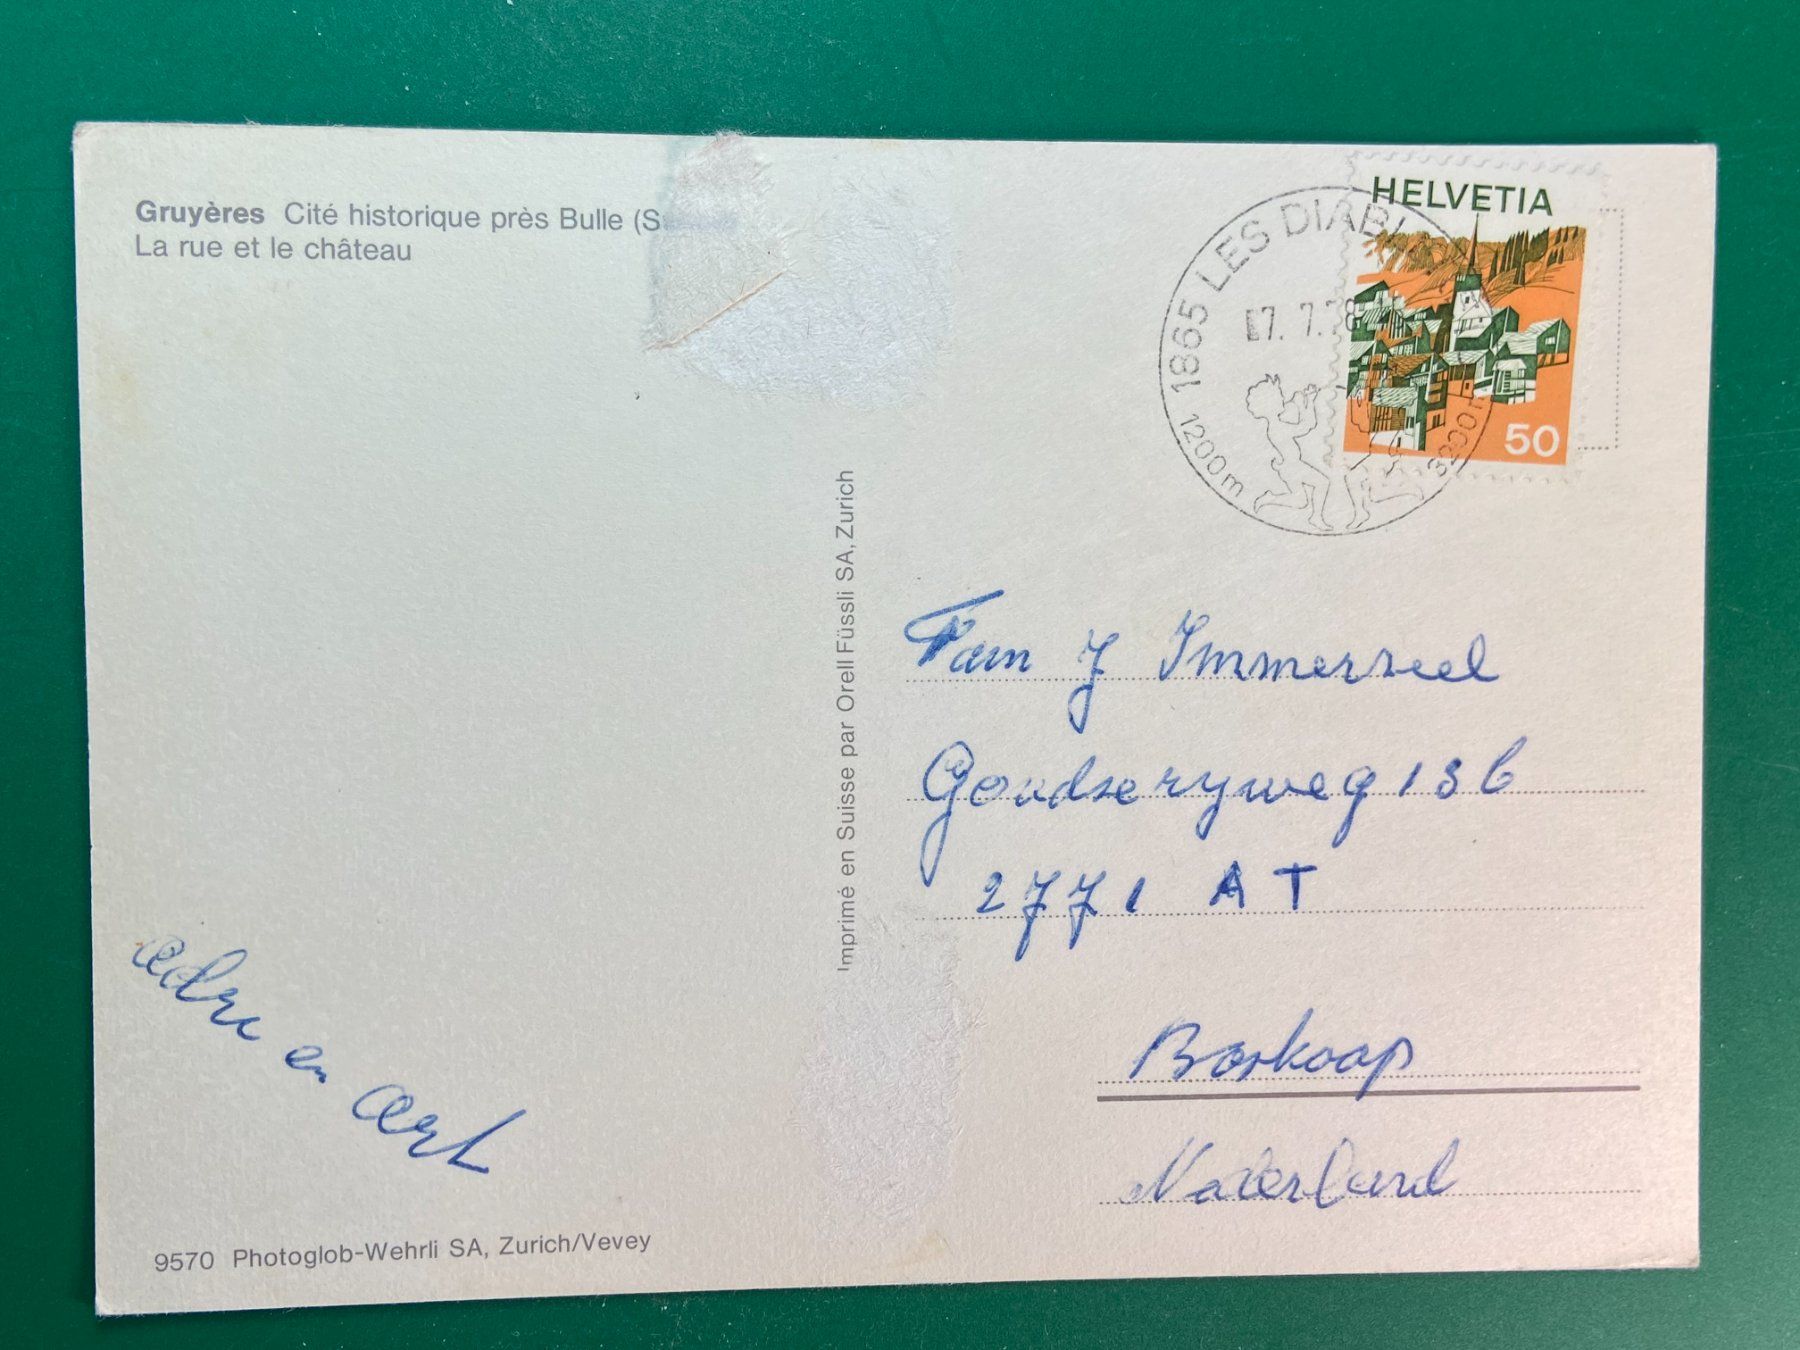 Gruyères Cité historique près Bulle
La rue et le château
HELVETIA
50
1865 LES DIABL
7. 7. 78
1200m
3200m
Imprimé en Suisse par Orell Füssli SA, Zurich
Fam J Immerzeel
Goudse rijweg 136
2771 A T
Boskoop
Nederland
adri en aart
9570 Photoglob-Wehrli SA, Zurich/Vevey